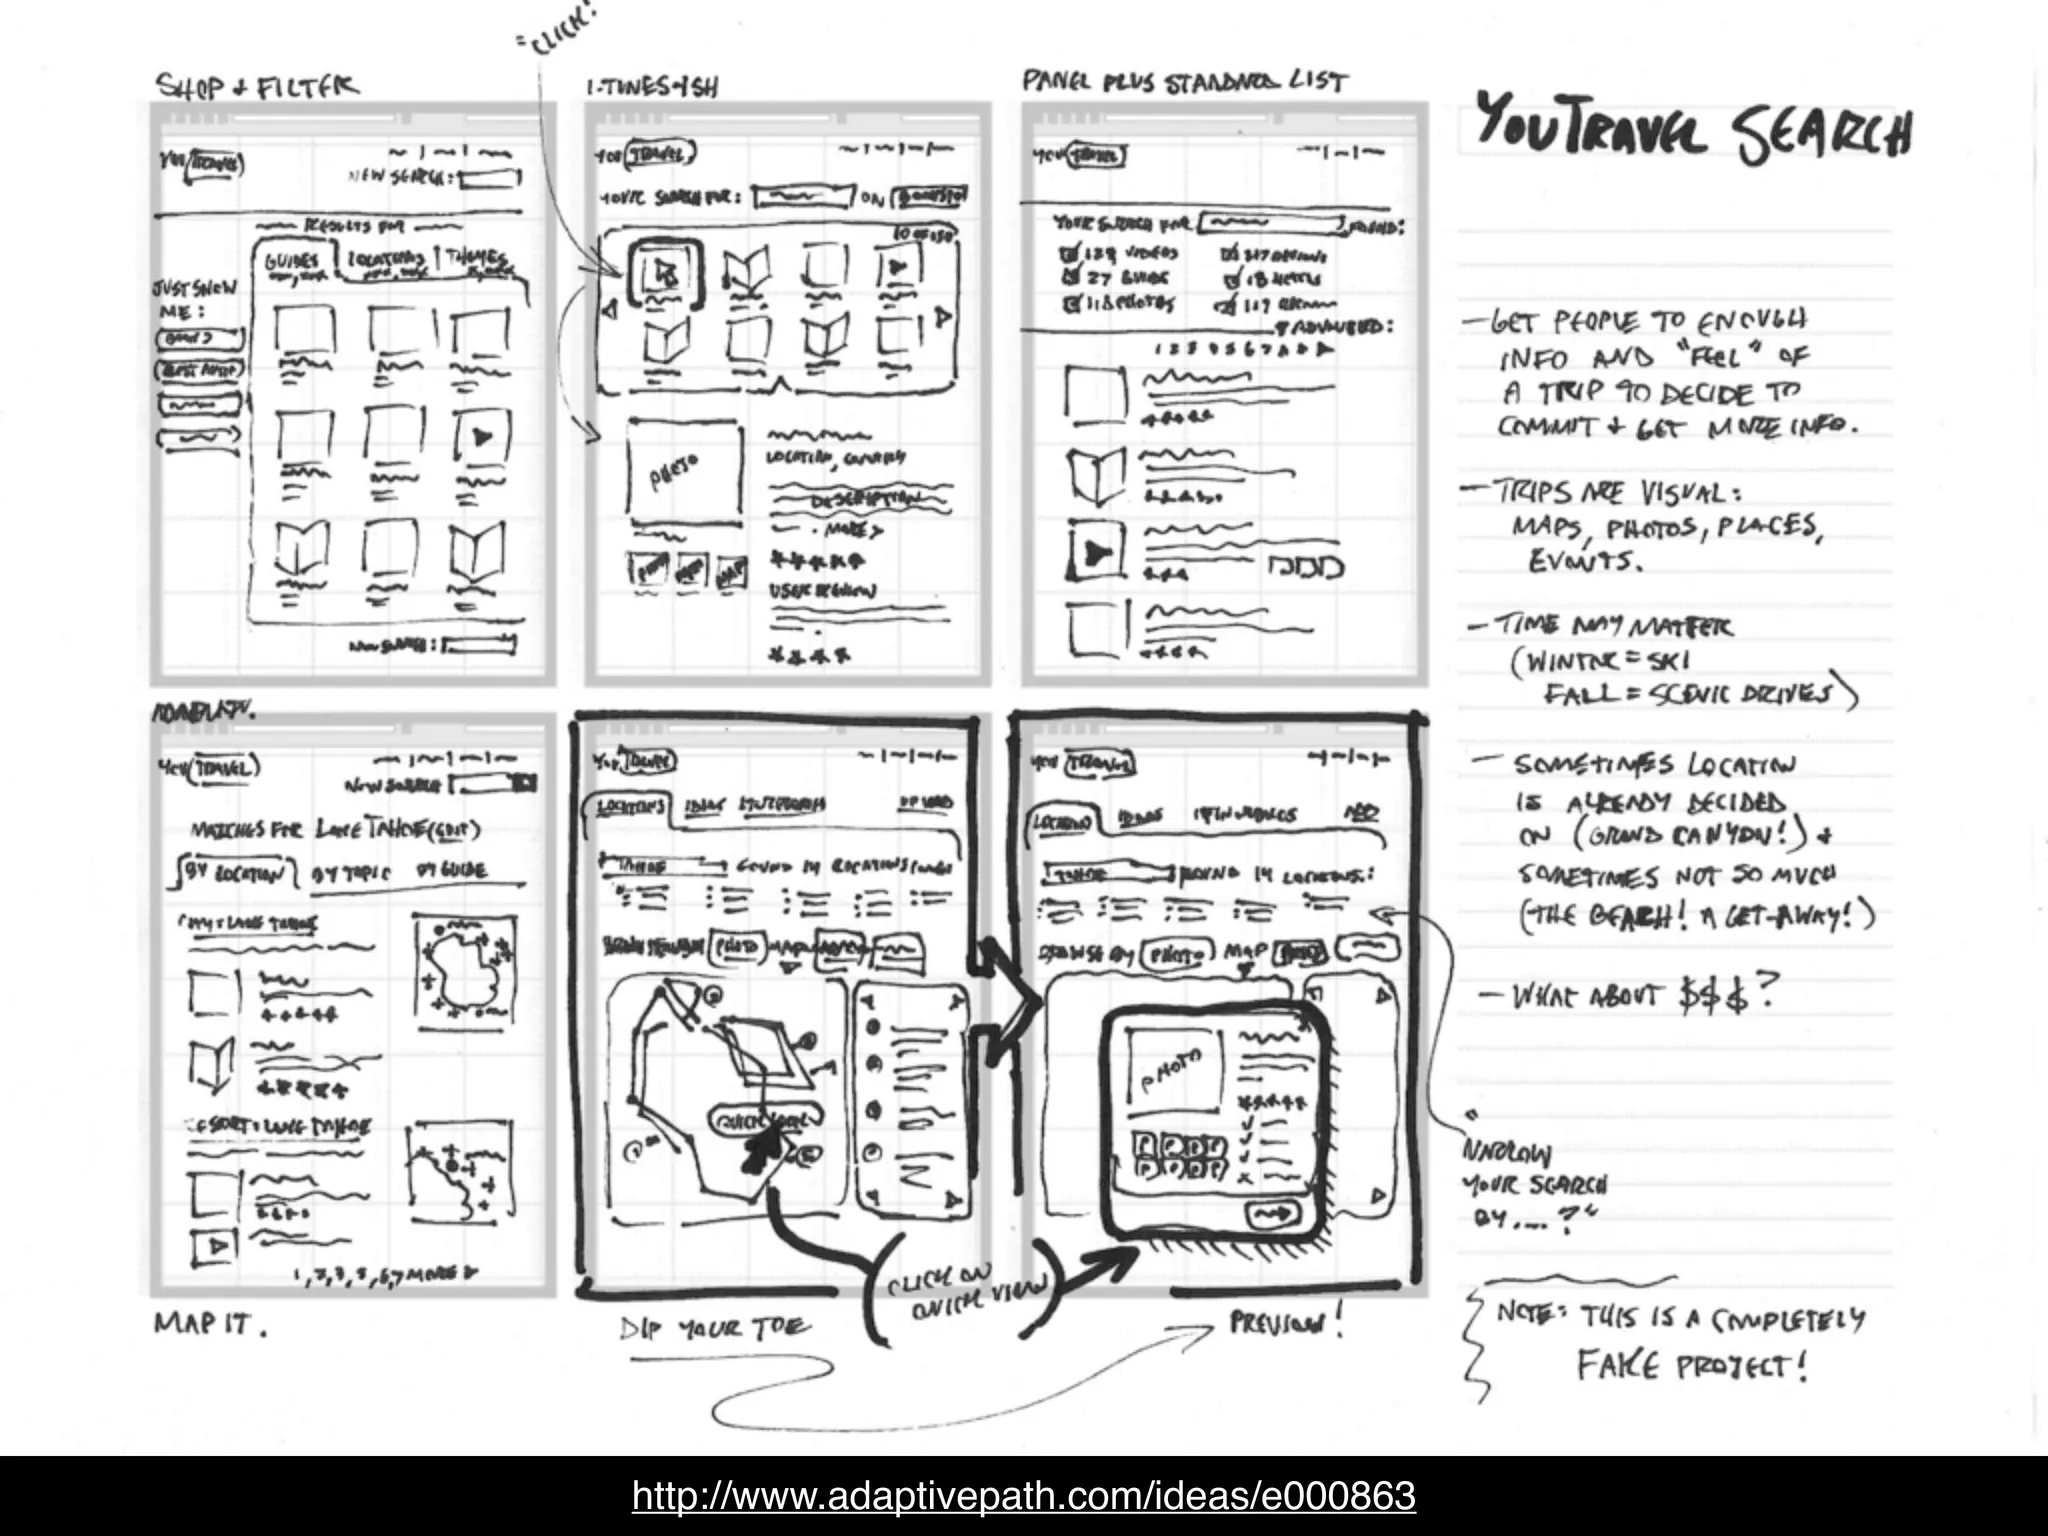 "CLICK!"
SHOP & FILTER
YOU TRAVEL
NEW SEARCH:
RESULTS FOR
GUIDES LOCATIONS THEMES
JUST SHOW
ME:
NEW SEARCH:
I-TUNES-ISH
YOU TRAVEL
YOUR SEARCH FOR: ON
PHOTO
LOCATION, COUNTRY
DESCRIPTION
MORE >
USER REVIEW
MAP
PANEL PLUS STANDARD LIST
YOU TRAVEL
YOUR SEARCH FOR FOUND:
VIDEOS
27 GUIDES
PHOTOS
ADVANCED:
YOU TRAVEL
NEW SEARCH
MATCHES FOR LAKE TAHOE (EDIT)
BY LOCATION BY TOPIC BY GUIDE
CITY: LAKE TAHOE
RESORT: LAKE TAHOE
1, 2, 3, 5, 6, 7 MORE
MAP IT.
YOU TRAVEL
LOCATIONS IDEAS UPLOAD
TAHOE FOUND 14 LOCATIONS
PHOTO MAP
QUICK VIEW
DIP YOUR TOE
(CLICK ON
QUICK VIEW)
YOU TRAVEL
LOCATIONS IDEAS ITINERARIES ADD
TAHOE FOUND 14 LOCATIONS:
BROWSE BY PHOTO MAP
PHOTO
PREVIEW!
YOUTRAVEL SEARCH
- GET PEOPLE TO ENOUGH
INFO AND "FEEL" OF
A TRIP TO DECIDE TO
COMMIT & GET MORE INFO.
- TRIPS ARE VISUAL:
MAPS, PHOTOS, PLACES,
EVENTS.
- TIME MAY MATTER
(WINTER = SKI
FALL = SCENIC DRIVES)
- SOMETIMES LOCATION
IS ALREADY DECIDED
ON (GRAND CANYON!) &
SOMETIMES NOT SO MUCH
(THE BEACH! A GET-AWAY!)
- WHAT ABOUT $$$?
"NARROW
YOUR SEARCH
BY....?"
NOTE: THIS IS A COMPLETELY
FAKE PROJECT!
http://www.adaptivepath.com/ideas/e000863